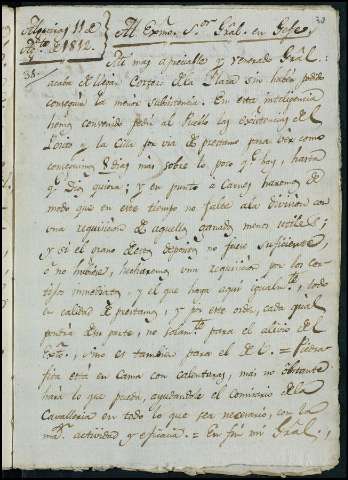 Algeciras 11 de
Ag.to de 1812.
Al Exmo. S.or Gral. en Gefe,
30
38.
Mi mas apreciable y venerado Gral.
acaba de llegar Cortés de la Plaza sin haber podido
conseguir la menor subsistencia. En esta inteligencia
hemos convenido pedir al Pueblo las existencias del
Posito y la Cilla por via de prestamo para ver como
conseguimos 8 dias mas sobre lo poco q.e hay, hasta
q.e Dios quiera; y en punto a Carnes haremos de
modo que en este tiempo no falte a la division con
una requisicion de aquellos ganados menos utiles;
y si el grano de este deposito no fuese suficiente,
o no hubiese, hecharemos una requisicion por los Cor-
tijos inmediatos, y el que haya aqui igualm.te, todo
en calidad de prestamo, y por este orden, cada qual
pondra de su parte, no solam.te para el alivio del
Exto., sino es tambien para el de V.E. = Piedra-
fita está en Cama con calenturas, mas no obstante
hará lo que pueda, ayudandole el Comisario de la
Cavalleria en todo lo que sea necesario, con la
m.or actividad y eficacia. = En fin mi Gral.,